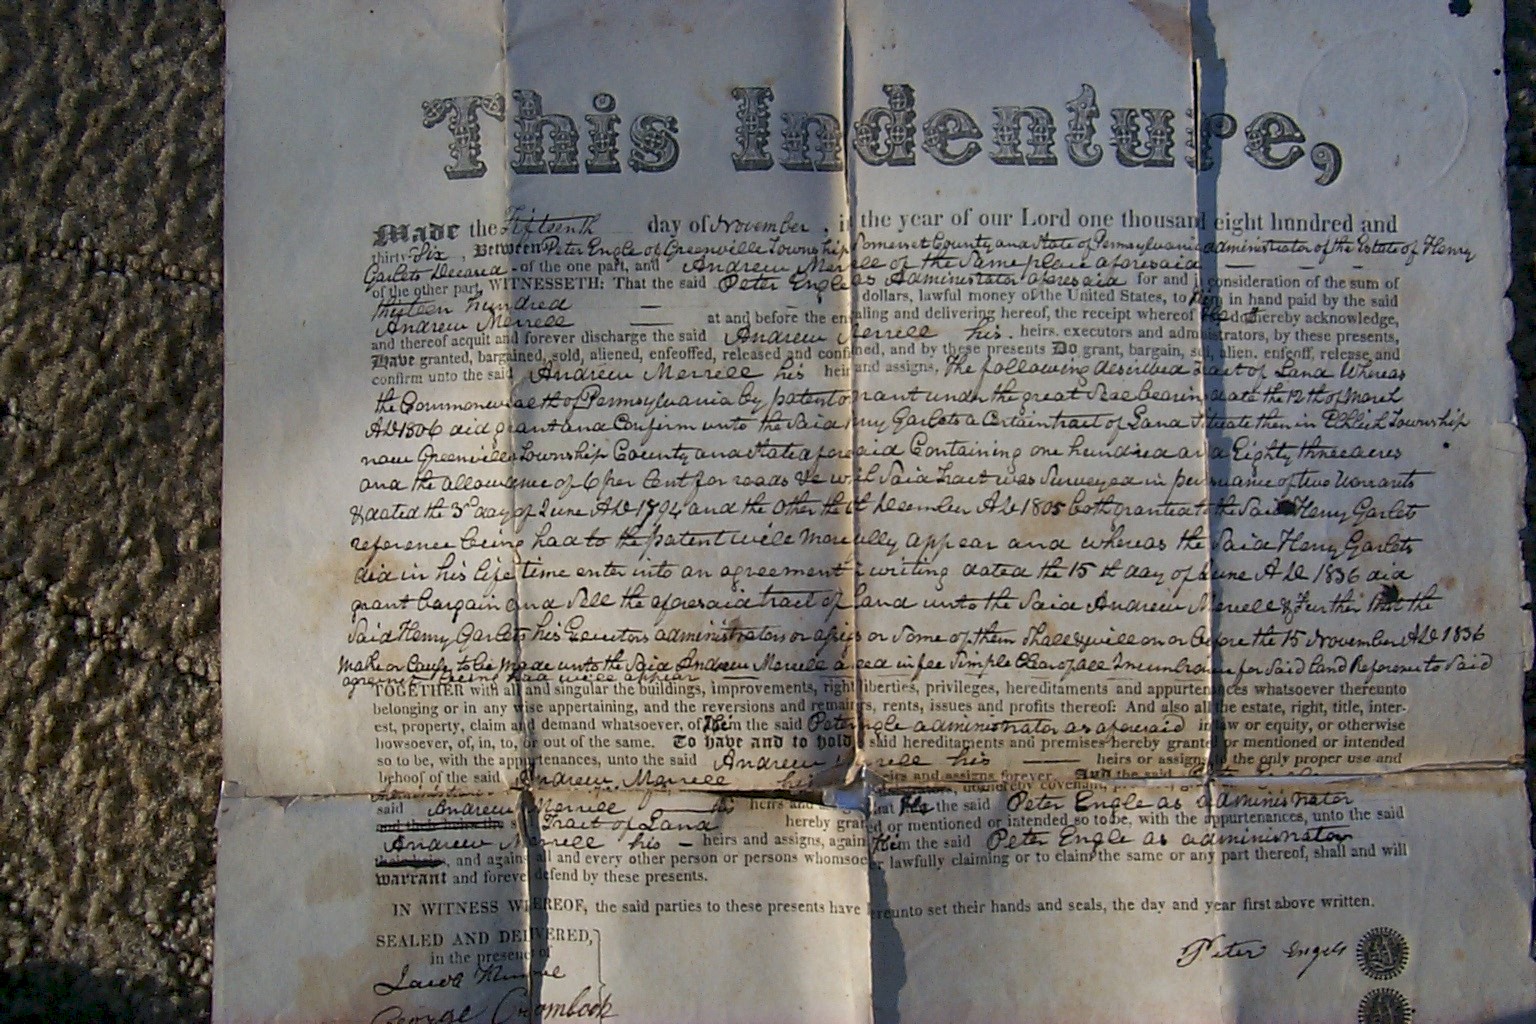 This Indenture,
Made the Fifteenth day of November, in the year of our Lord one thousand eight hundred and
thirty Six, Between Peter Engle of Greenville Township Somerset County and State of Pennsylvania administrator of the Estate of Henry
Garlets Deceased of the one part, and Andrew Merrell of the Same place aforesaid
of the other part, WITNESSETH: That the said Peter Engle as Administrator aforesaid for and in consideration of the sum of
thirteen hundred dollars, lawful money of the United States, to him in hand paid by the said
Andrew Merrell at and before the ensealing and delivering hereof, the receipt whereof he do hereby acknowledge,
and thereof acquit and forever discharge the said Andrew Merrell his heirs. executors and administrators, by these presents,
Have granted, bargained, sold, aliened, enfeoffed, released and confirmed, and by these presents Do grant, bargain, sell, alien. enfeoff, release and
confirm unto the said Andrew Merrell his heirs and assigns, The following described tract of Land Whereas
the Commonwealth of Pennsylvania by patent or grant under the great Seal bearing date the 12th of March
AD 1806 did grant and Confirm unto the Said Henry Garlets a Certain tract of Land Situate then in Township
now Greenville Township County and State aforesaid Containing one hundred and Eighty three acres
and the allowance of 6 per Cent for roads &c Said tract was Surveyed in pursuance of two Warrants
dated the 3rd day of June AD 1794 and the other the December AD 1805 both granted to the Said Henry Garlets
reference being had to the patent will more fully appear and whereas the Said Henry Garlets
did in his life time enter into an agreement in writing dated the 15th day of June AD 1836 did
grant bargain and Sell the aforesaid tract of Land unto the Said Andrew Merrell & Further that the
Said Henry Garlets his Executors administrators or assigns or Some of them Shall & will on or before the 15 November AD 1836
make or Cause to be made unto the Said Andrew Merrell a deed in fee Simple Clear of all Incumbrance for Said Land Reference to Said
agreement being had will appear
TOGETHER with all and singular the buildings, improvements, rights liberties, privileges, hereditaments and appurtenances whatsoever thereunto
belonging or in any wise appertaining, and the reversions and remainders, rents, issues and profits thereof: And also all the estate, right, title, inter-
est, property, claim and demand whatsoever, of him the said Peter Engle administrator as aforesaid in law or equity, or otherwise
howsoever, of, in, to, or out of the same. To have and to hold said hereditaments and premises hereby granted or mentioned or intended
so to be, with the appurtenances, unto the said Andrew Merrell his heirs or assigns to the only proper use and
behoof of the said Andrew Merrell his heirs and assigns forever. And the said
said Andrew Merrell his heirs and that he the said Peter Engle as administrator
Tract of Land hereby granted or mentioned or intended so to be, with the appurtenances, unto the said
Andrew Merrell his heirs and assigns, against him the said Peter Engle as administrator
and against all and every other person or persons whomsoever lawfully claiming or to claim the same or any part thereof, shall and will
warrant and forever defend by these presents.
IN WITNESS WHEREOF, the said parties to these presents have hereunto set their hands and seals, the day and year first above written.
SEALED AND DELIVERED,
in the presence of
Peter Engle
George